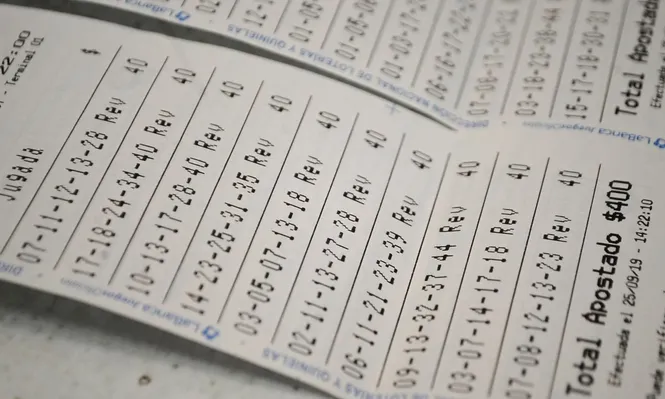 22:00
Terminal 01
Jugada $
07-11-12-13-28 Rev 40
17-18-24-34-40 Rev 40
10-13-17-28-40 Rev 40
14-23-25-31-35 Rev 40
03-05-07-13-18 Rev 40
02-11-13-27-28 Rev 40
06-11-21-23-39 Rev 40
09-13-32-37-44 Rev 40
03-07-14-17-18 Rev 40
07-08-12-13-23 Rev 40
Total Apostado $400
Efectuada el 25/09/19 - 14:22:10
LaBanca
LaBanca
DE LOTERIAS Y QUINIELAS
LaBanca
DIRECCION NACIONAL DE LOTERIAS Y QUINIELAS
LaBanca
01-05
01-05-06
01-03-17
06-16-17-22
07-08-17-20-21
03-18-23-38-44
15-17-18-30-31
Total Apostado
Efectuada el